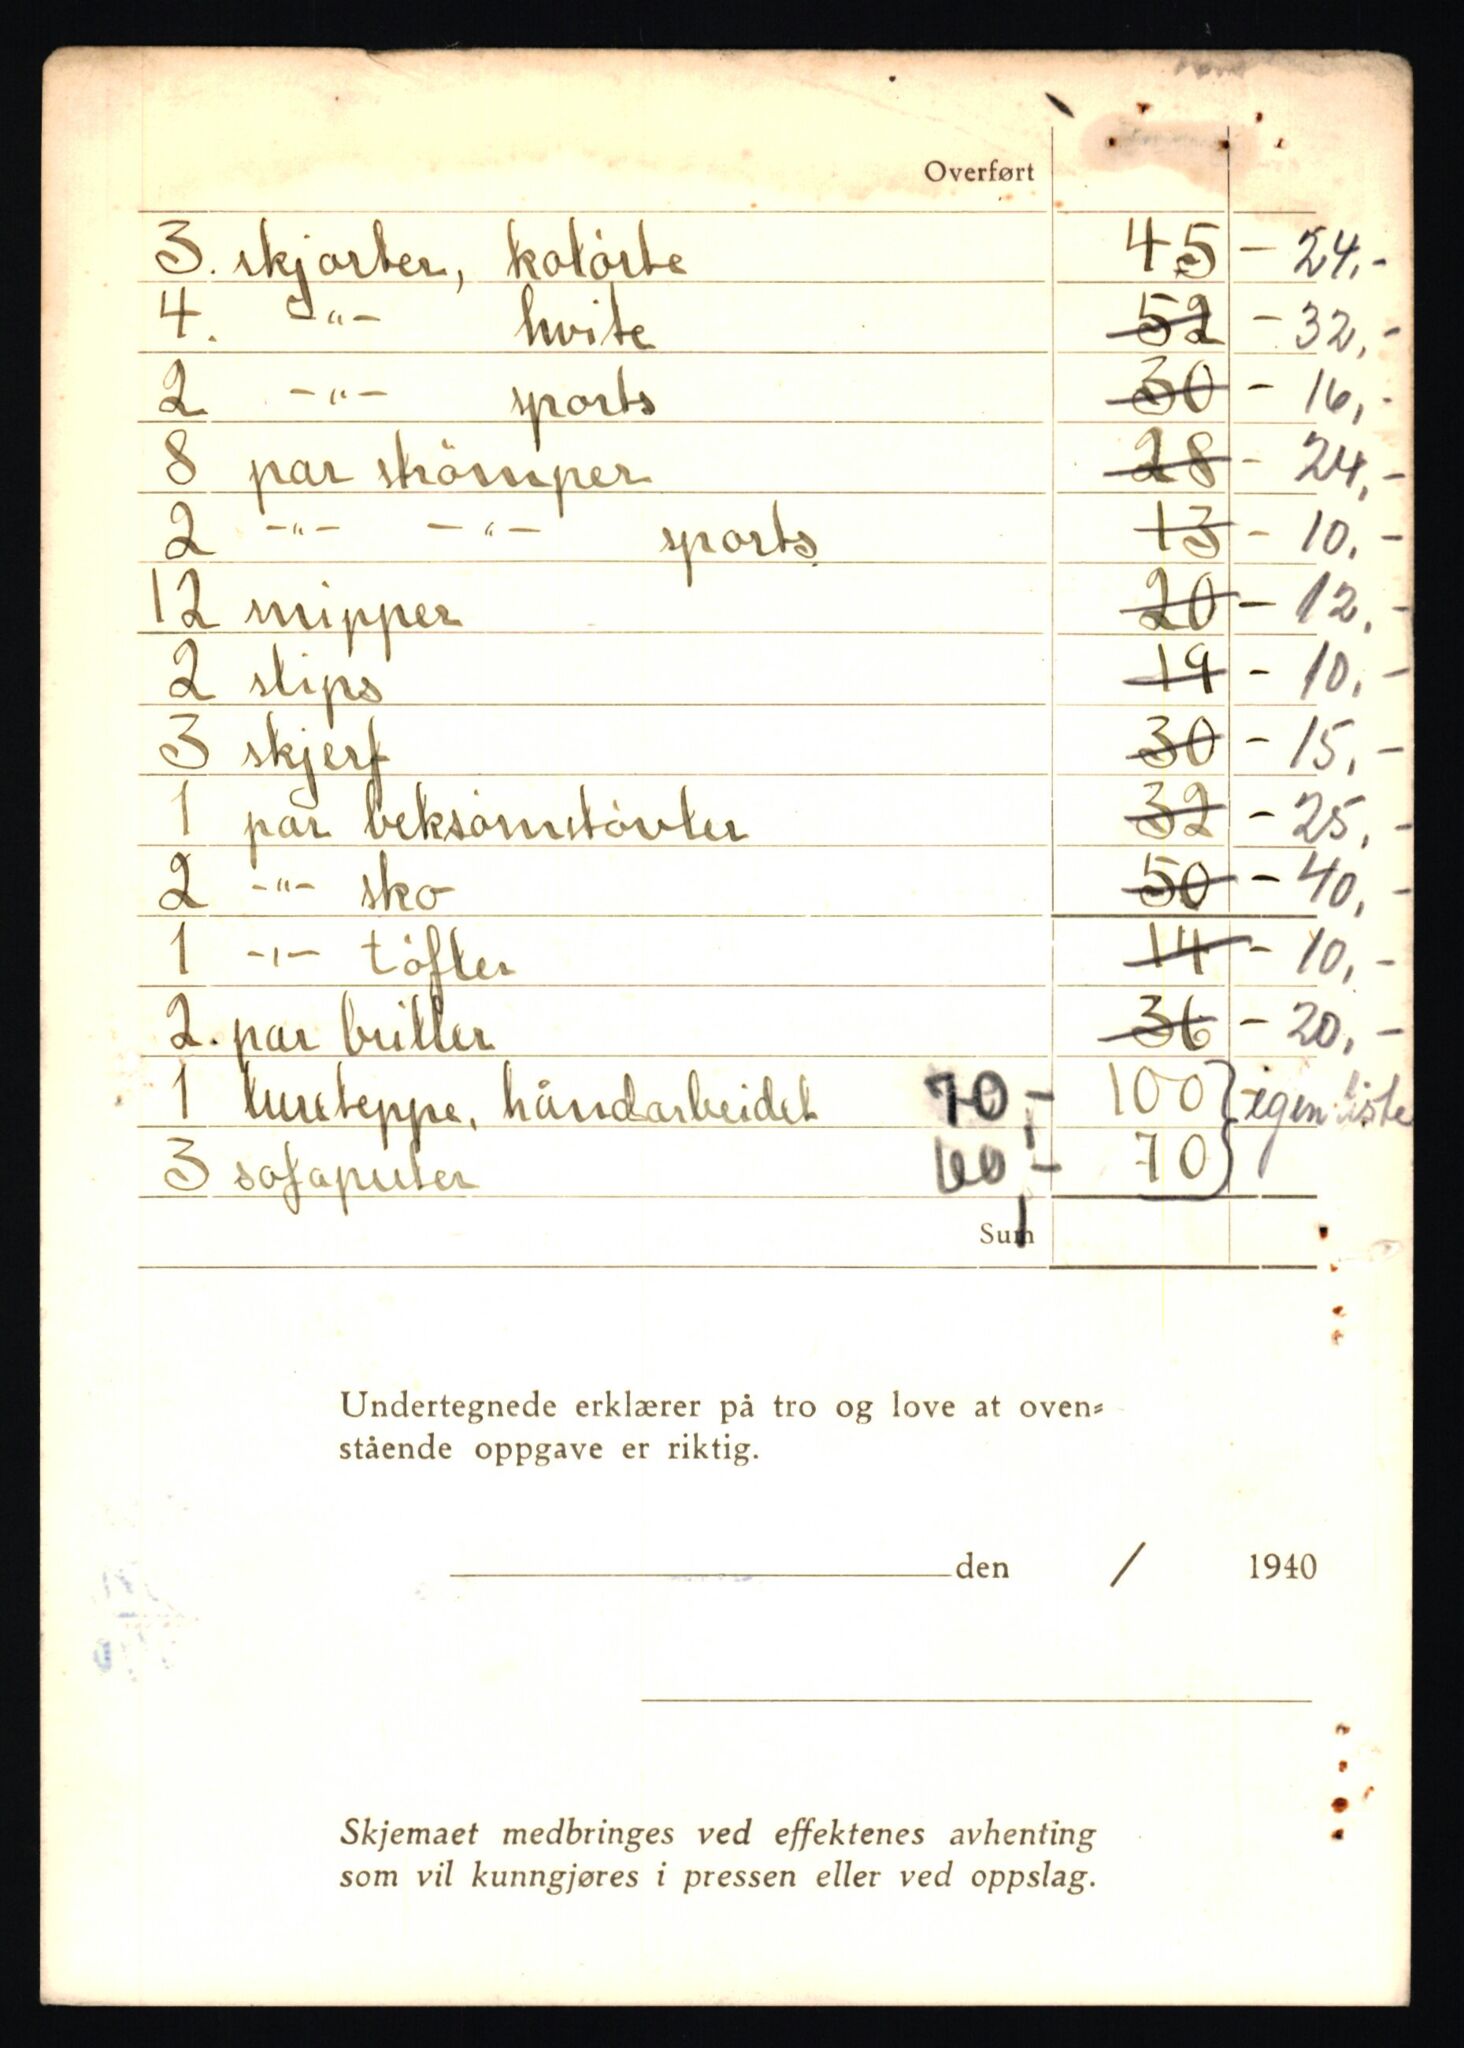 Overført
3. skjorter, kolörte 45 - 24,-
4. -"- hvite 52 - 32,-
2 -"- sports 30 - 16,-
8 par strömper 28 - 24,-
2 -"- -"- sports 13 - 10,-
12 snipper 20 - 12,-
2 slips 19 - 10,-
3 skjerf 30 - 15,-
1 par beksömstövler 32 - 25,-
2 -"- sko 50 - 40,-
1 -"- töfler 14 - 10,-
2. par briller 36 - 20,-
1 lureteppe, håndarbeidet 70,- 100 - egen liste
3 sofaputer 60,- 70
Sum
Undertegnede erklærer på tro og love at oven=
stående oppgave er riktig.
den / 1940
Skjemaet medbringes ved effektenes avhenting
som vil kunngjøres i pressen eller ved oppslag.